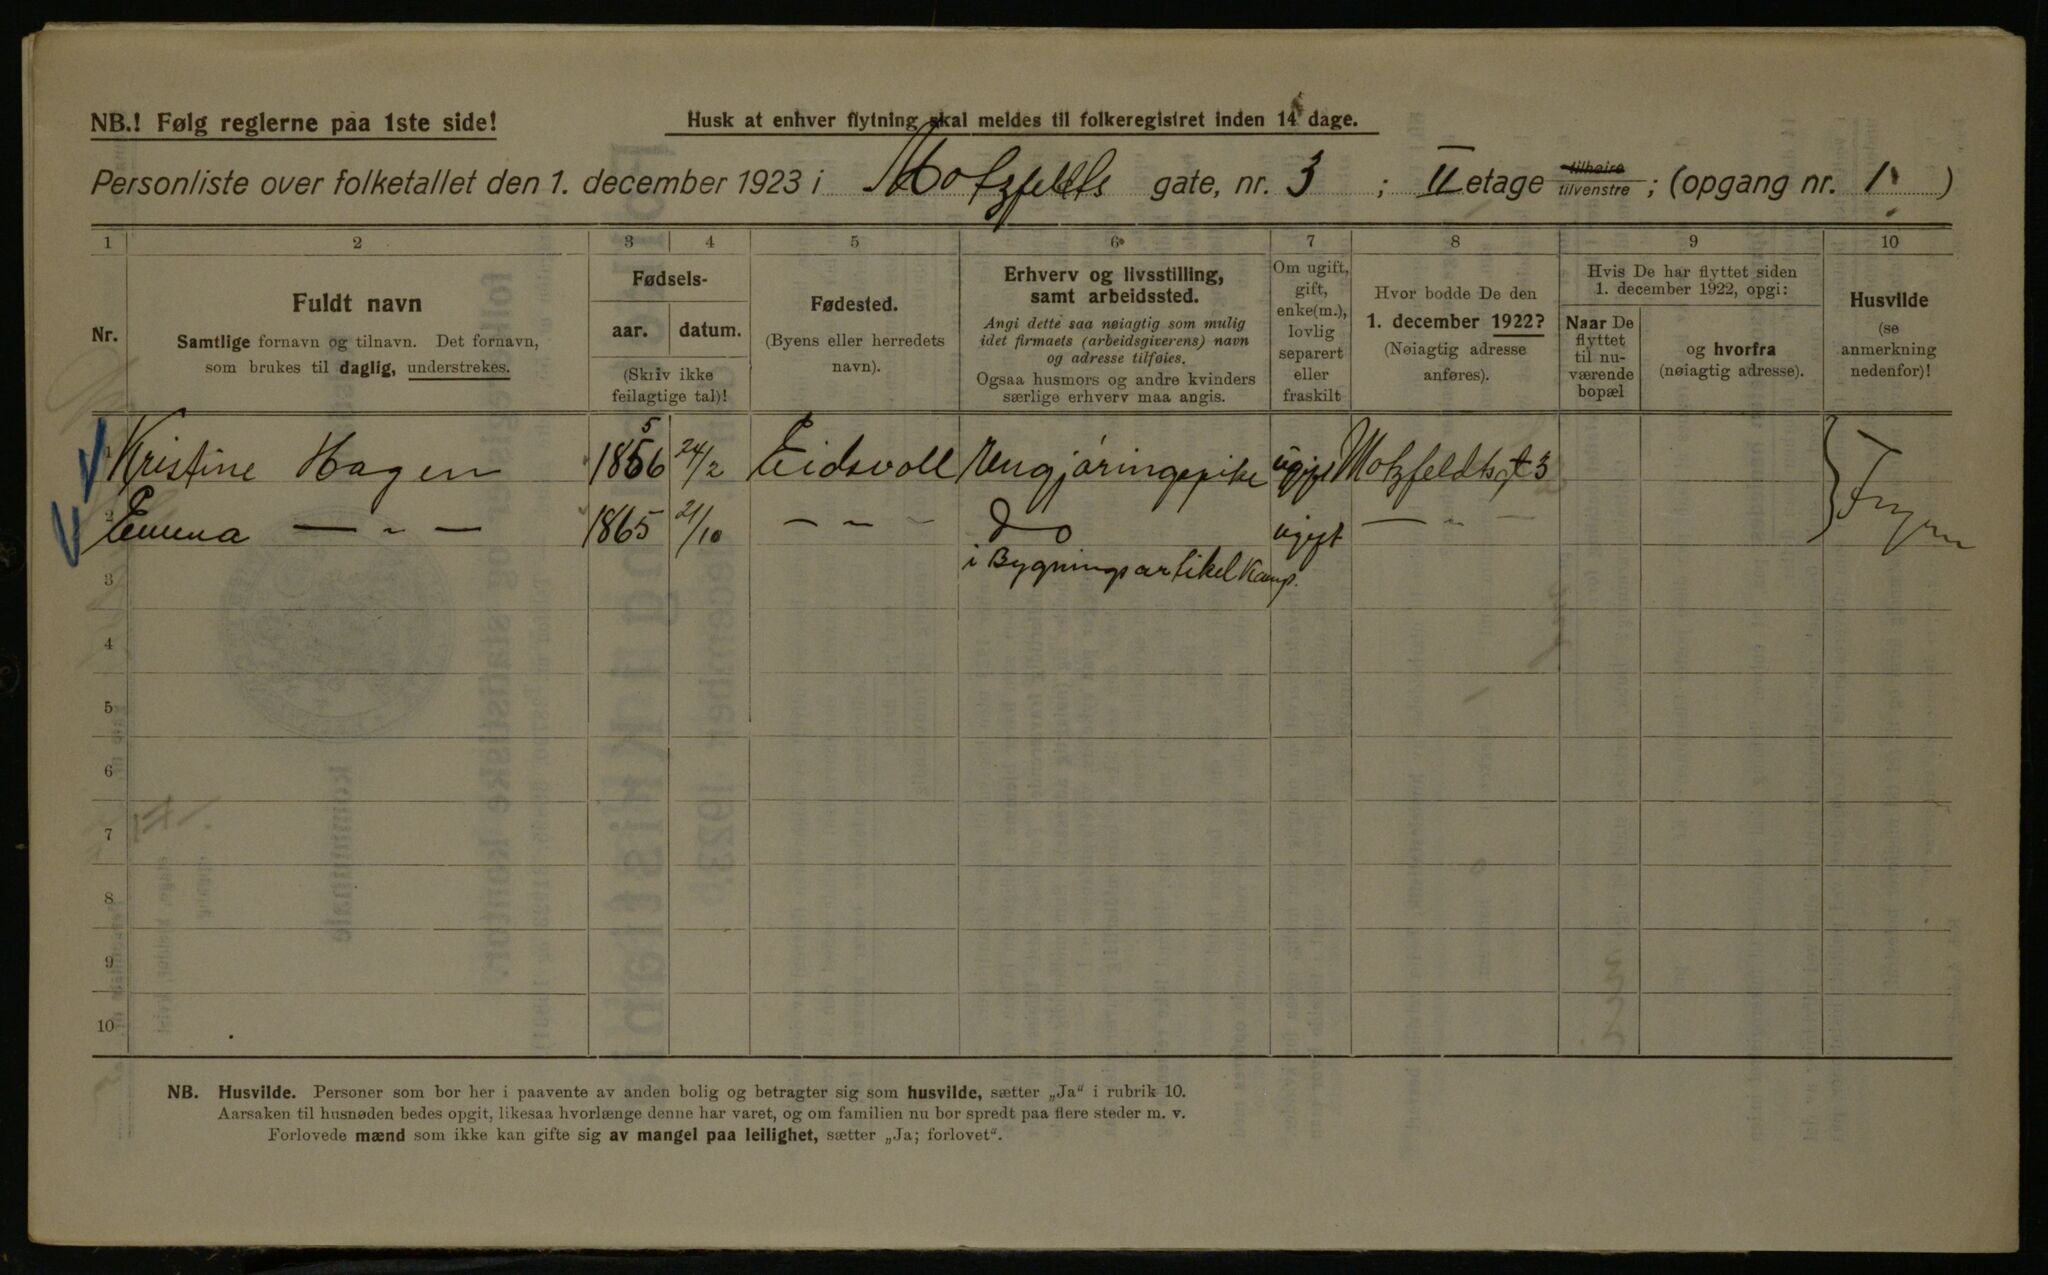 NB.! Følg reglerne paa 1ste side!
Husk at enhver flytning skal meldes til folkeregistret inden 14 dage.
Personliste over folketallet den 1. december 1923 i Motzfeldts gate, nr. 3 ; II etage tilhøire tilvenstre ; (opgang nr. 1 )
1 2 3 4 5 6 7 8 9 10
Nr.
Fuldt navn
Samtlige fornavn og tilnavn. Det fornavn,
som brukes til daglig, understrekes.
Fødsels-
aar. datum.
(Skriv ikke
feilagtige tal)!
Fødested.
(Byens eller herredets
navn).
Erhverv og livsstilling,
samt arbeidssted.
Angi dette saa nøiagtig som mulig
idet firmaets (arbeidsgiverens) navn
og adresse tilføies.
Ogsaa husmors og andre kvinders
særlige erhverv maa angis.
Om ugift,
gift,
enke(m.),
lovlig
separert
eller
fraskilt
Hvor bodde De den
1. december 1922?
(Nøiagtig adresse
anføres).
Hvis De har flyttet siden
1. december 1922, opgi:
Naar De
flyttet
til nu-
værende
bopæl
og hvorfra
(nøiagtig adresse).
Husvilde
(se
anmerkning
nedenfor)!
5
Kristine Hagen 1856 24/2 Eidsvoll Rengjøringspike ugift Motzfeldtsgt 3
2 Emma — " — 1865 21/10 — " — Do ugift — " —
3 i Bygningsartikel Komp.
4
5
6
7
8
9
10
NB. Husvilde. Personer som bor her i paavente av anden bolig og betragter sig som husvilde, sætter „Ja“ i rubrik 10.
Aarsaken til husnøden bedes opgit, likesaa hvorlænge denne har varet, og om familien nu bor spredt paa flere steder m. v.
Forlovede mænd som ikke kan gifte sig av mangel paa leilighet, sætter „Ja; forlovet“.